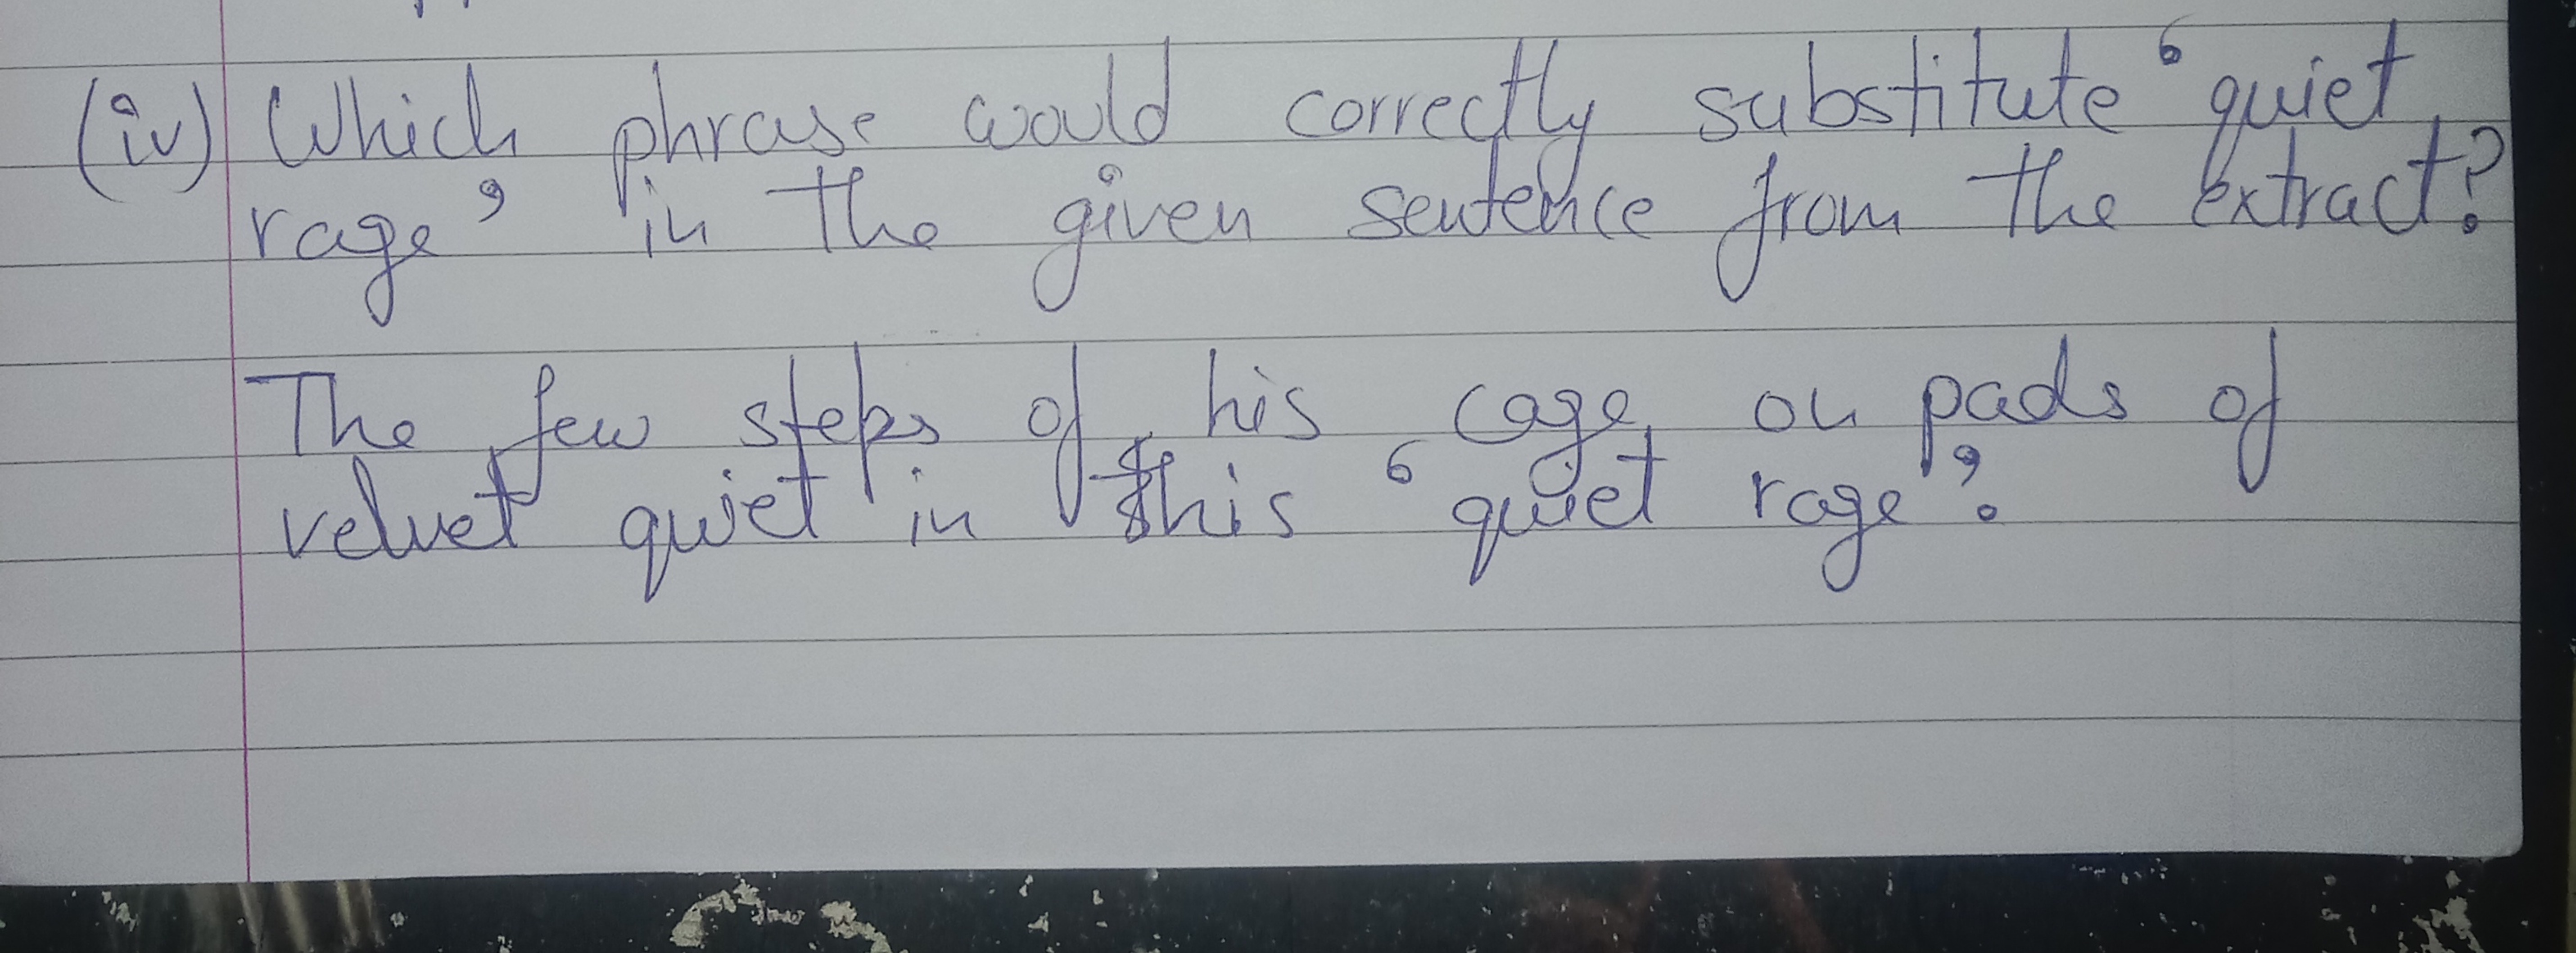 (iv) Which phrase would correctly substitute ‘quiet
rage’ in the given sentence from the extract?
The few steps of his cage, on pads of
velvet quiet in this ‘quiet rage’.